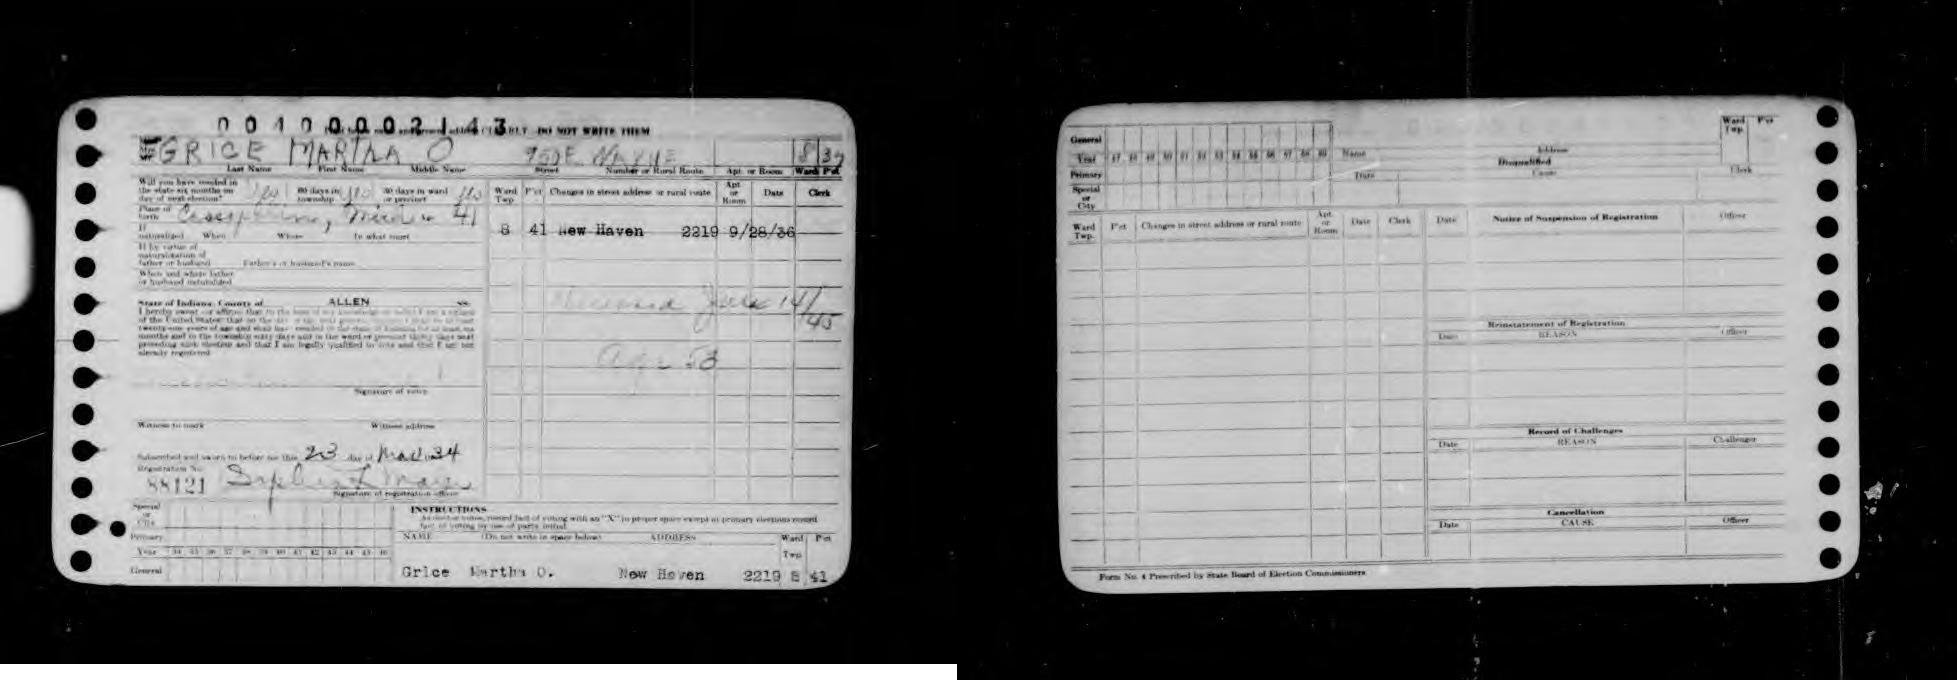 00400002143
CLEARLY - DO NOT WRITE THEM
GRICE MARTHA O 950 E WAYNE 8 39
Last Name First Name Middle Name Street Number or Rural Route Apt. or Room Ward Pct
Will you have resided in the state six months on day of next election? Yes 60 days in township Yes 30 days in ward or precinct Yes
Place of birth 41
If naturalized When Where In what court
If by virtue of naturalization of father or husband Father's or husband's name
When and where father or husband naturalized
State of Indiana, County of ALLEN ss.
I hereby swear or affirm that to the best of my knowledge or belief I am a citizen
of the United States; that on the day of the next general election I shall be at least
twenty-one years of age and shall have resided in the state of Indiana for at least six
months and in the township sixty days and in the ward or precinct thirty days next
preceding such election and that I am legally qualified to vote and that I am not
already registered
Signature of voter
Witness to mark Witness address
Subscribed and sworn to before me this 23 day of Mar 1934
Registration No.
88121
Signature of registration officer
Ward Twp P'ct Changes in street address or rural route Apt. or Room Date Clerk
8 41 New Haven 2219 9/28/36
Deceased June 14/45
Age 53
Special or City
Primary
Year 34 35 36 37 38 39 40 41 42 43 44 45 46
General
INSTRUCTIONS
As elector votes, record fact of voting with an "X" in proper space except at primary elections record
fact of voting by use of party initial.
NAME (Do not write in space below) ADDRESS Ward Twp. P'ct
Grice Martha O. New Haven 2219 8 41
General
Year 47 48 49 50 51 52 53 54 55 56 57 58 59
Primary
Special or City
Name Address Ward Twp. P'ct
Disqualified
Date Cause Clerk
Ward Twp. P'ct Changes in street address or rural route Apt. or Room Date Clerk
Date Notice of Suspension of Registration Officer
Reinstatement of Registration
Date REASON Officer
Record of Challenges
Date REASON Challenger
Cancellation
Date CAUSE Officer
Form No. 4 Prescribed by State Board of Election Commissioners